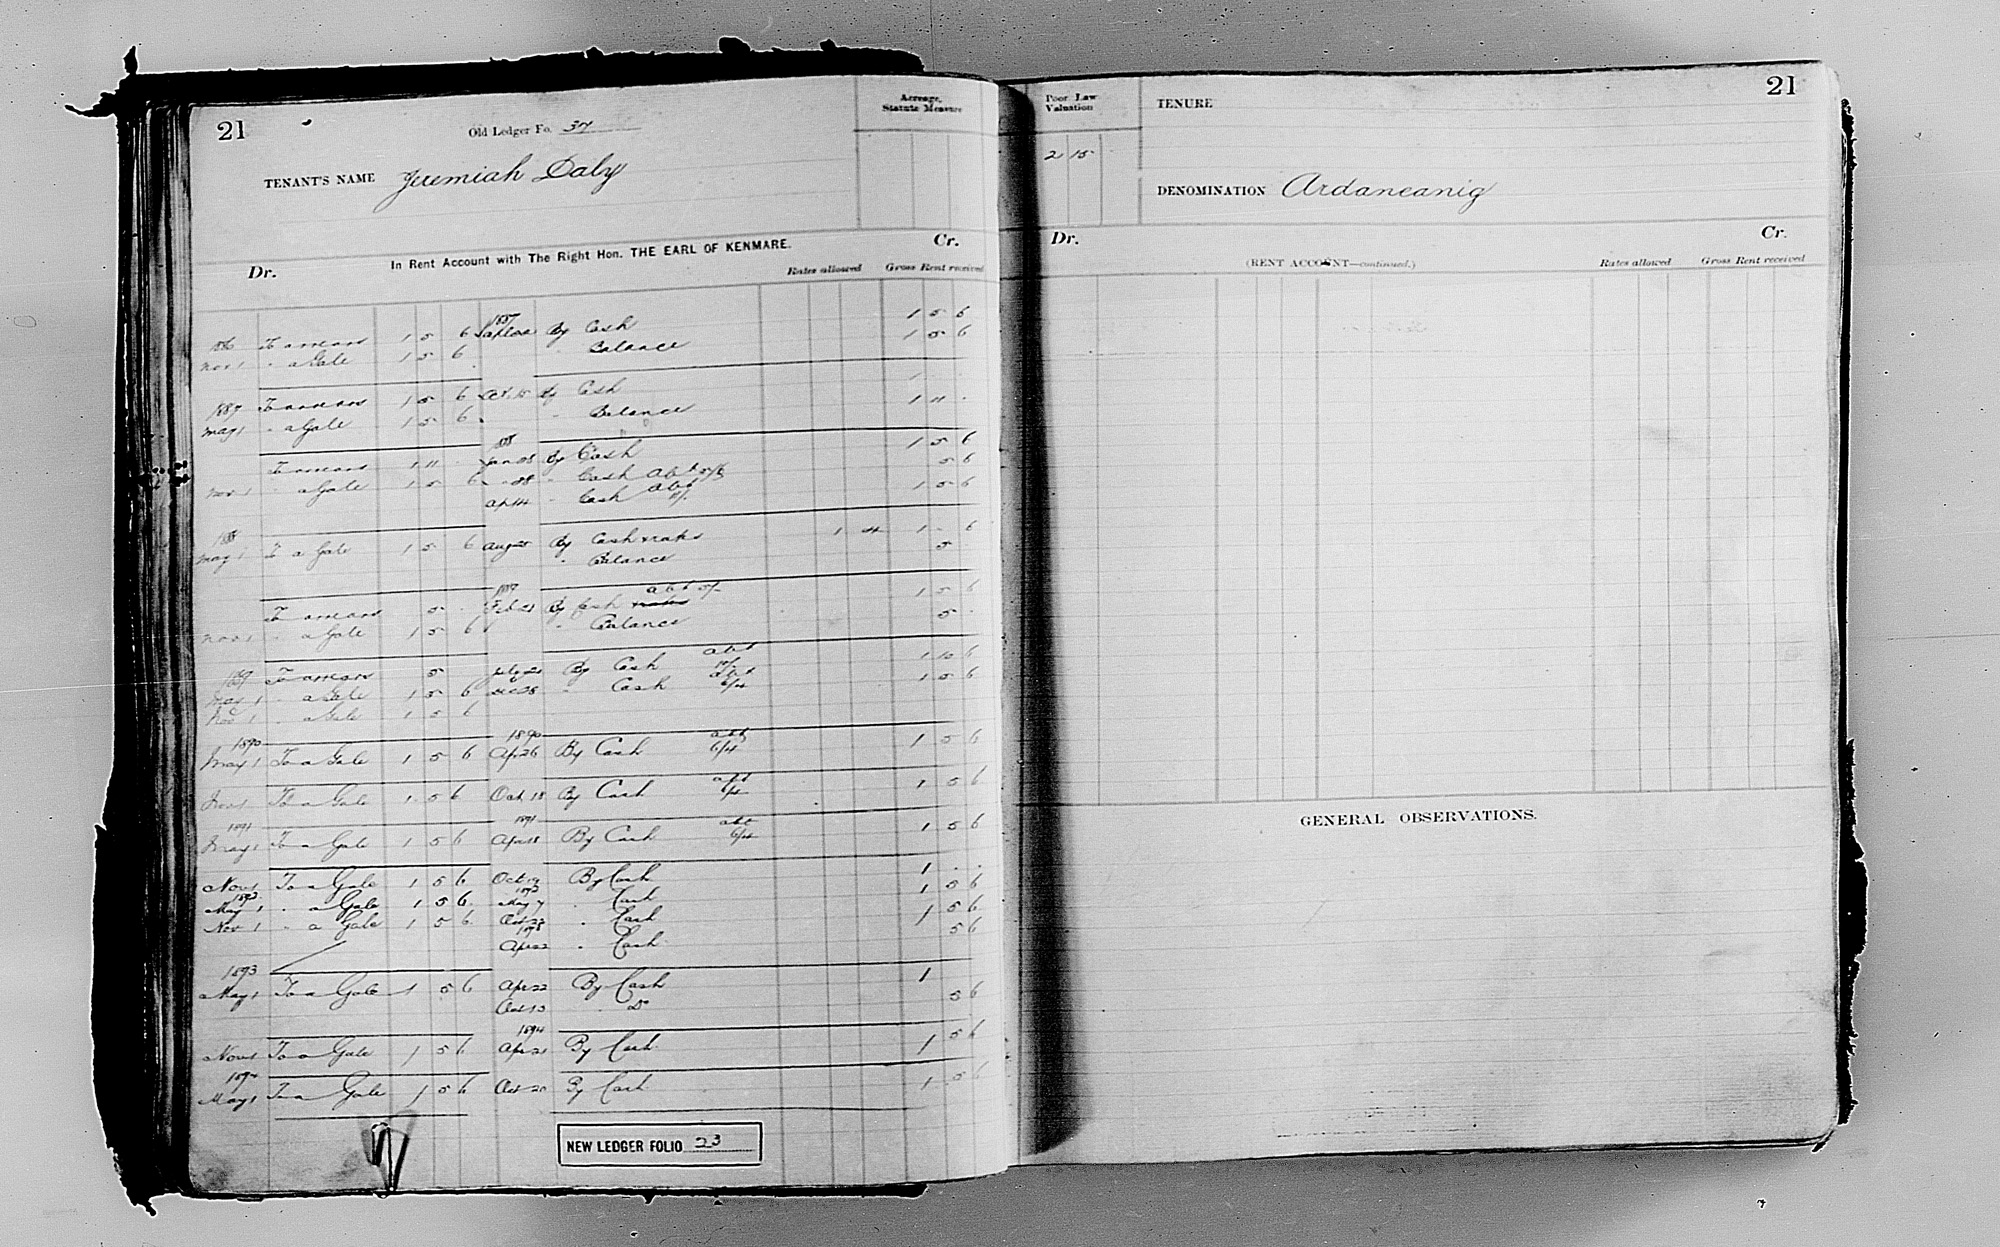 21
Old Ledger Fo. 37
Acreage, Statute Measure
TENANT'S NAME Jeremiah Daly
In Rent Account with The Right Hon. THE EARL OF KENMARE.
Dr. Cr.
Rates allowed Gross Rent received
1887
To arrears 1 5 6 By Cash 1 5 6
Nov 1 " a Gale 1 5 6 " Balance 1 5 6
1887 To arrears 1 5 6 Oct. 15 By Cash 1 . .
May 1 " a Gale 1 5 6 " Balance 1 11 .
1888
To arrears 1 11 . Jan 28 By Cash 1 5 6
Nov 1 " a Gale 1 5 6 " 28 " Cash Abt 5/6 5 6
Ap 14 " Cash Abt 1 5 6
1888
May 1 To a Gale 1 5 6 Aug 25 By Cash & rates 1 4 1 - 6
" Balance 5
1889
To arrears 5 . Feb 21 By Cash abt 5/- 1 5 6
Nov 1 " a Gale 1 5 6 " Balance 5 .
1889 To arrears 5 July 21 By Cash abt 10/- 1 10 6
May 1 " a Gale 1 5 6 Dec 28 " Cash abt 6/4 1 5 6
Nov 1 " a Gale 1 5 6
1890 1890
May 1 To a Gale 1 5 6 Apr 26 By Cash abt 6/4 1 5 6
Nov 1 To a Gale 1 5 6 Oct. 18 By Cash abt 6/4 1 5 6
1891 1891
May 1 To a Gale 1 5 6 Apr 18 By Cash abt 6/4 1 5 6
Nov 1 To a Gale 1 5 6 Oct 19 By Cash 1 . .
1892 1892
May 1 " a Gale 1 5 6 May 7 " Cash 1 5 6
Nov 1 " a Gale 1 5 6 Oct 22 " Cash 1 5 6
1893
Apr 22 " Cash 5 6
1893
May 1 To a Gale 1 5 6 Apr 22 By Cash 1
Oct 13 " Do 5 6
1894
Nov 1 To a Gale 1 5 6 Apr 21 By Cash 1 5 6
1894
May 1 To a Gale 1 5 6 Oct 20 By Cash 1 5 6
NEW LEDGER FOLIO 23
21
Poor Law Valuation
TENURE
2 15
DENOMINATION Ardaneanig
Dr. Cr.
(RENT ACCOUNT—continued.)
Rates allowed Gross Rent received
GENERAL OBSERVATIONS.